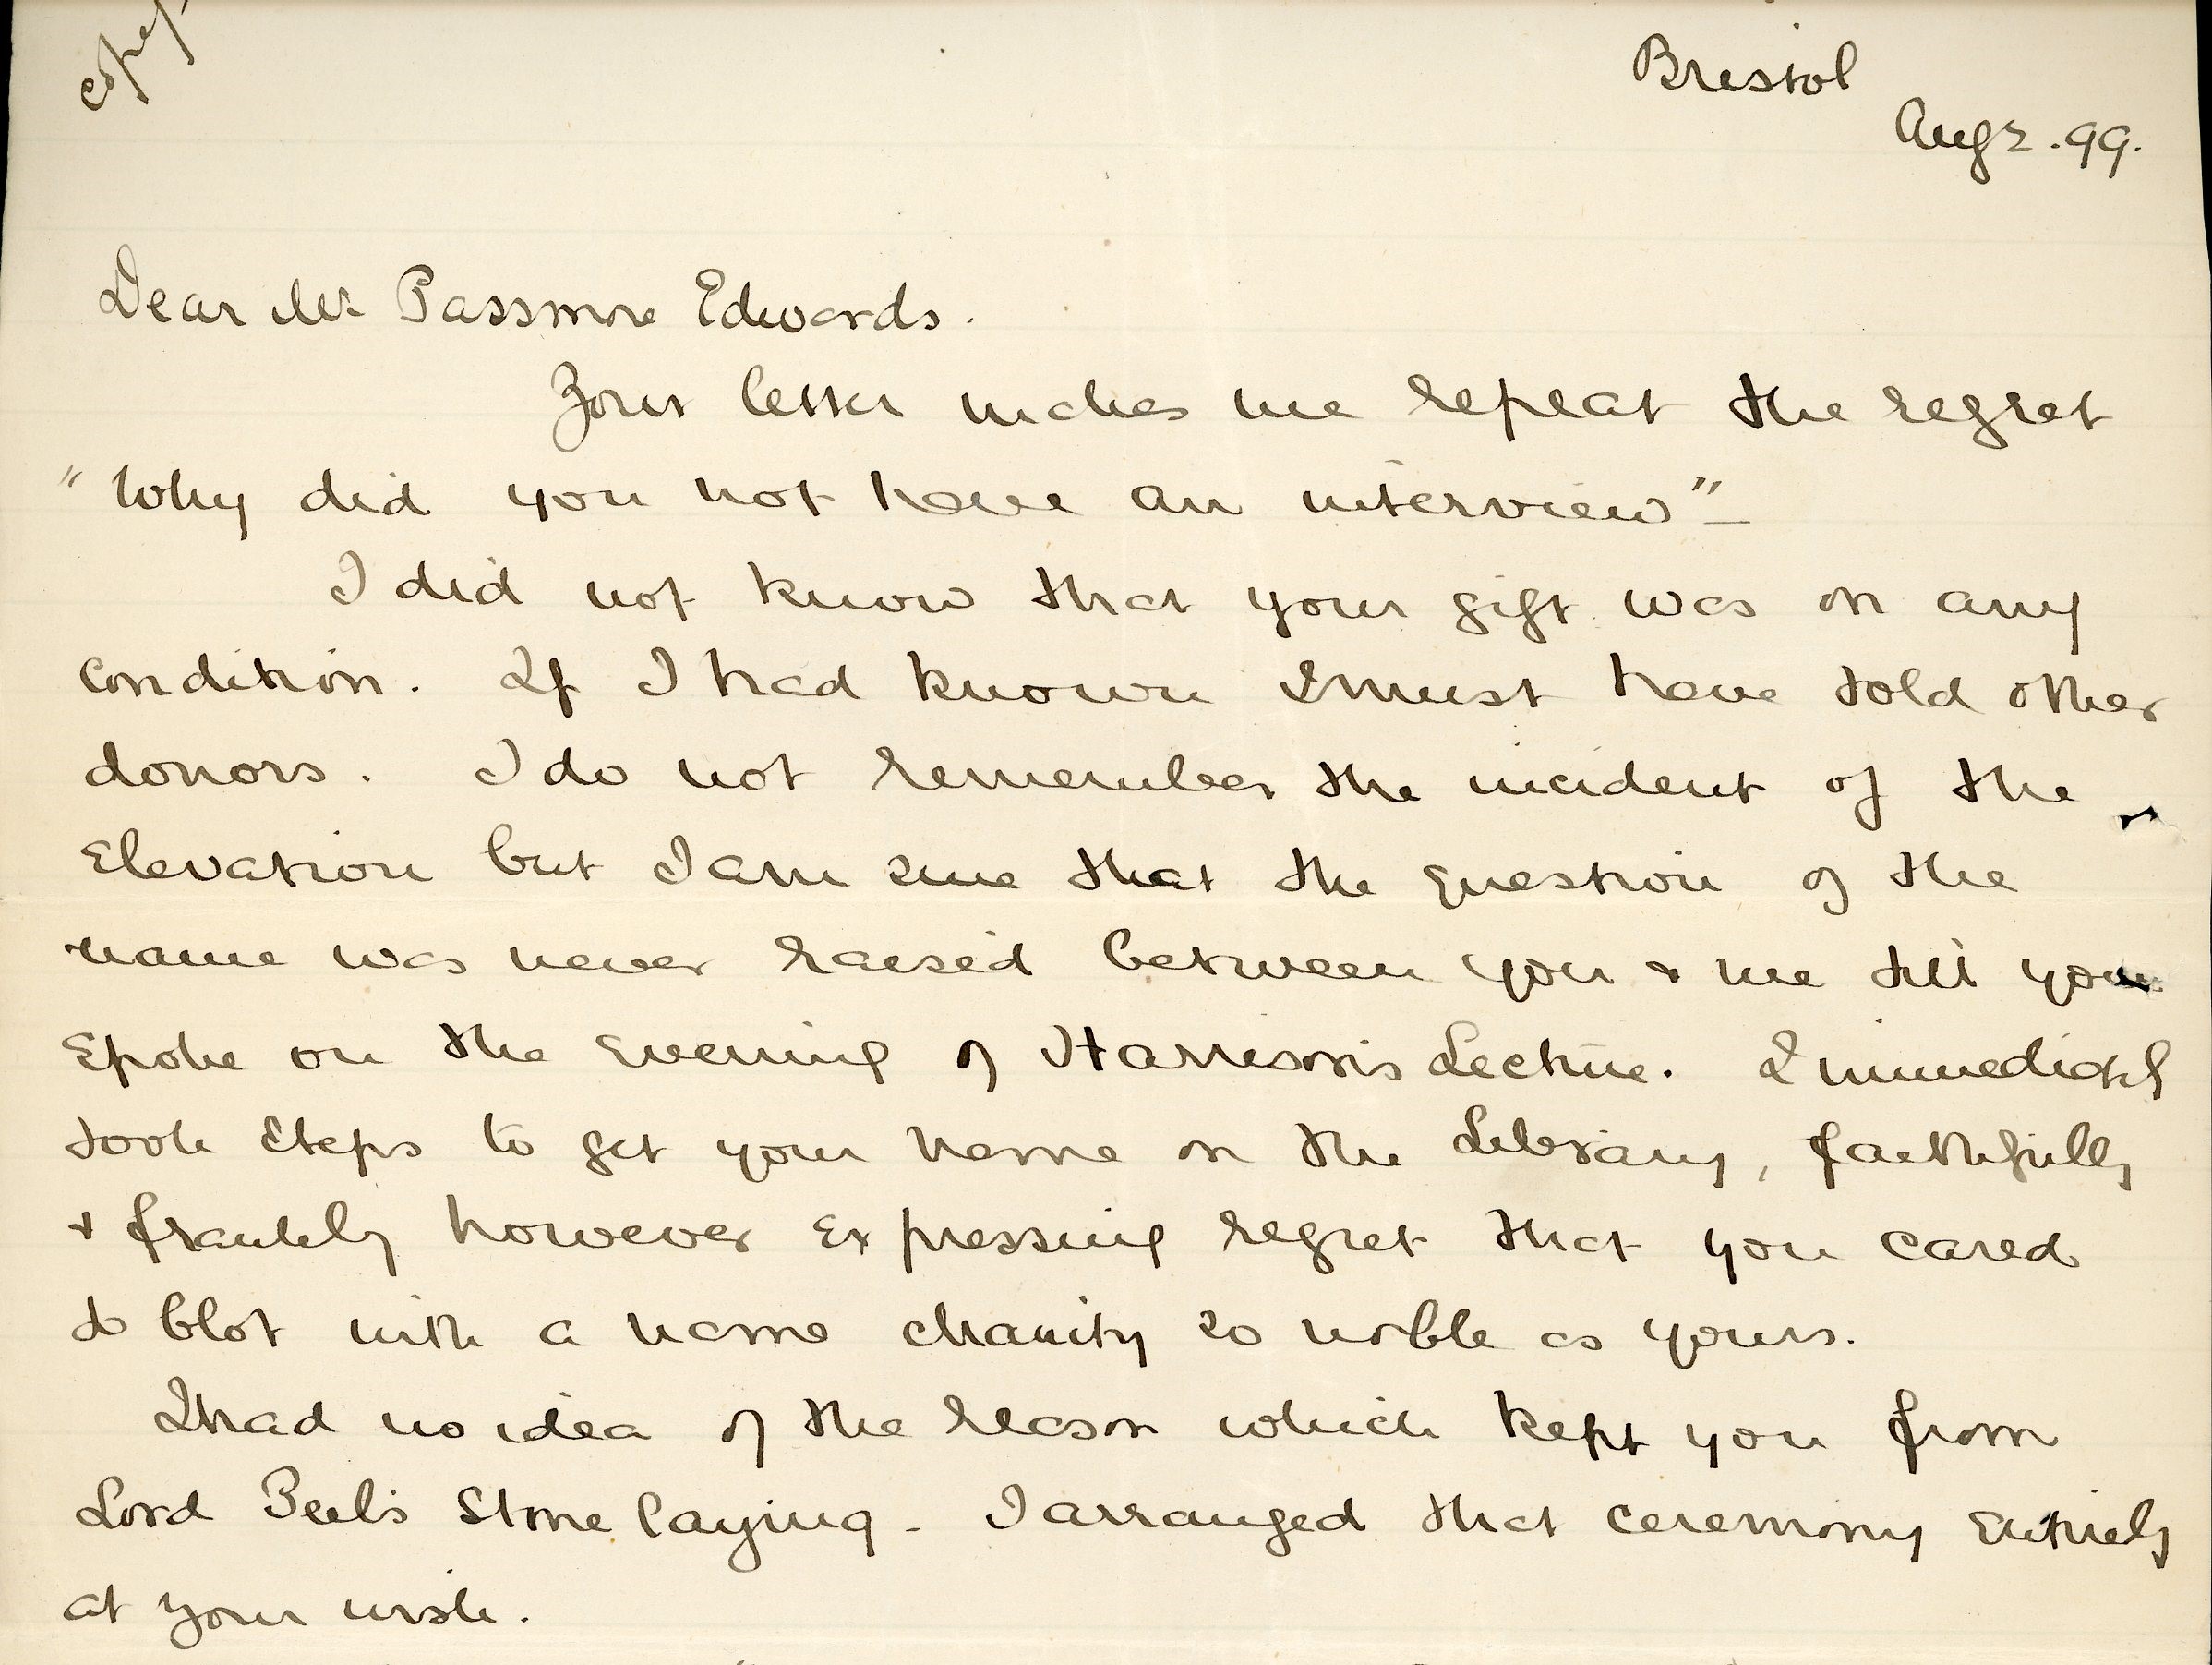 copy
Bristol
Aug 2. 99.
Dear Mr Passmore Edwards.
Your letter makes me repeat the regret
"Why did you not have an interview" –
I did not know that your gift was on any
condition. If I had known I must have told other
donors. I do not remember the incident of the
Elevation but I am sure that the question of the
name was never raised between you & me till you
spoke on the evening of Harrison's Lecture. I immediately
took steps to get your name on the Library, faithfully
& frankly however expressing regret that you cared
to blot with a name charity so noble as yours.
I had no idea of the reason which kept you from
Lord Peel's Stone laying – I arranged that ceremony entirely
at your wish.